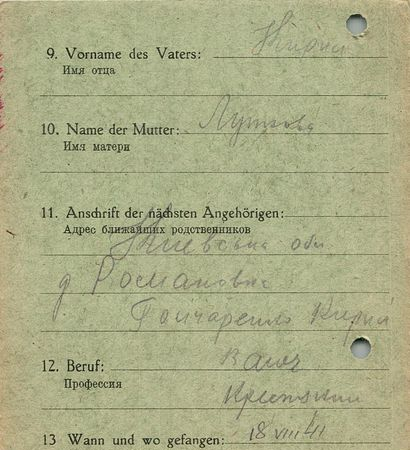 9. Vorname des Vaters: Кирил
Имя отца
10. Name der Mutter:
Имя матери
11. Anschrift der nächsten Angehörigen:
Адрес ближайших родственников
Киевська обл
д Романовка
Гончаренко Кирил
12. Beruf:
Профессия
13 Wann und wo gefangen: 18 VIII 41